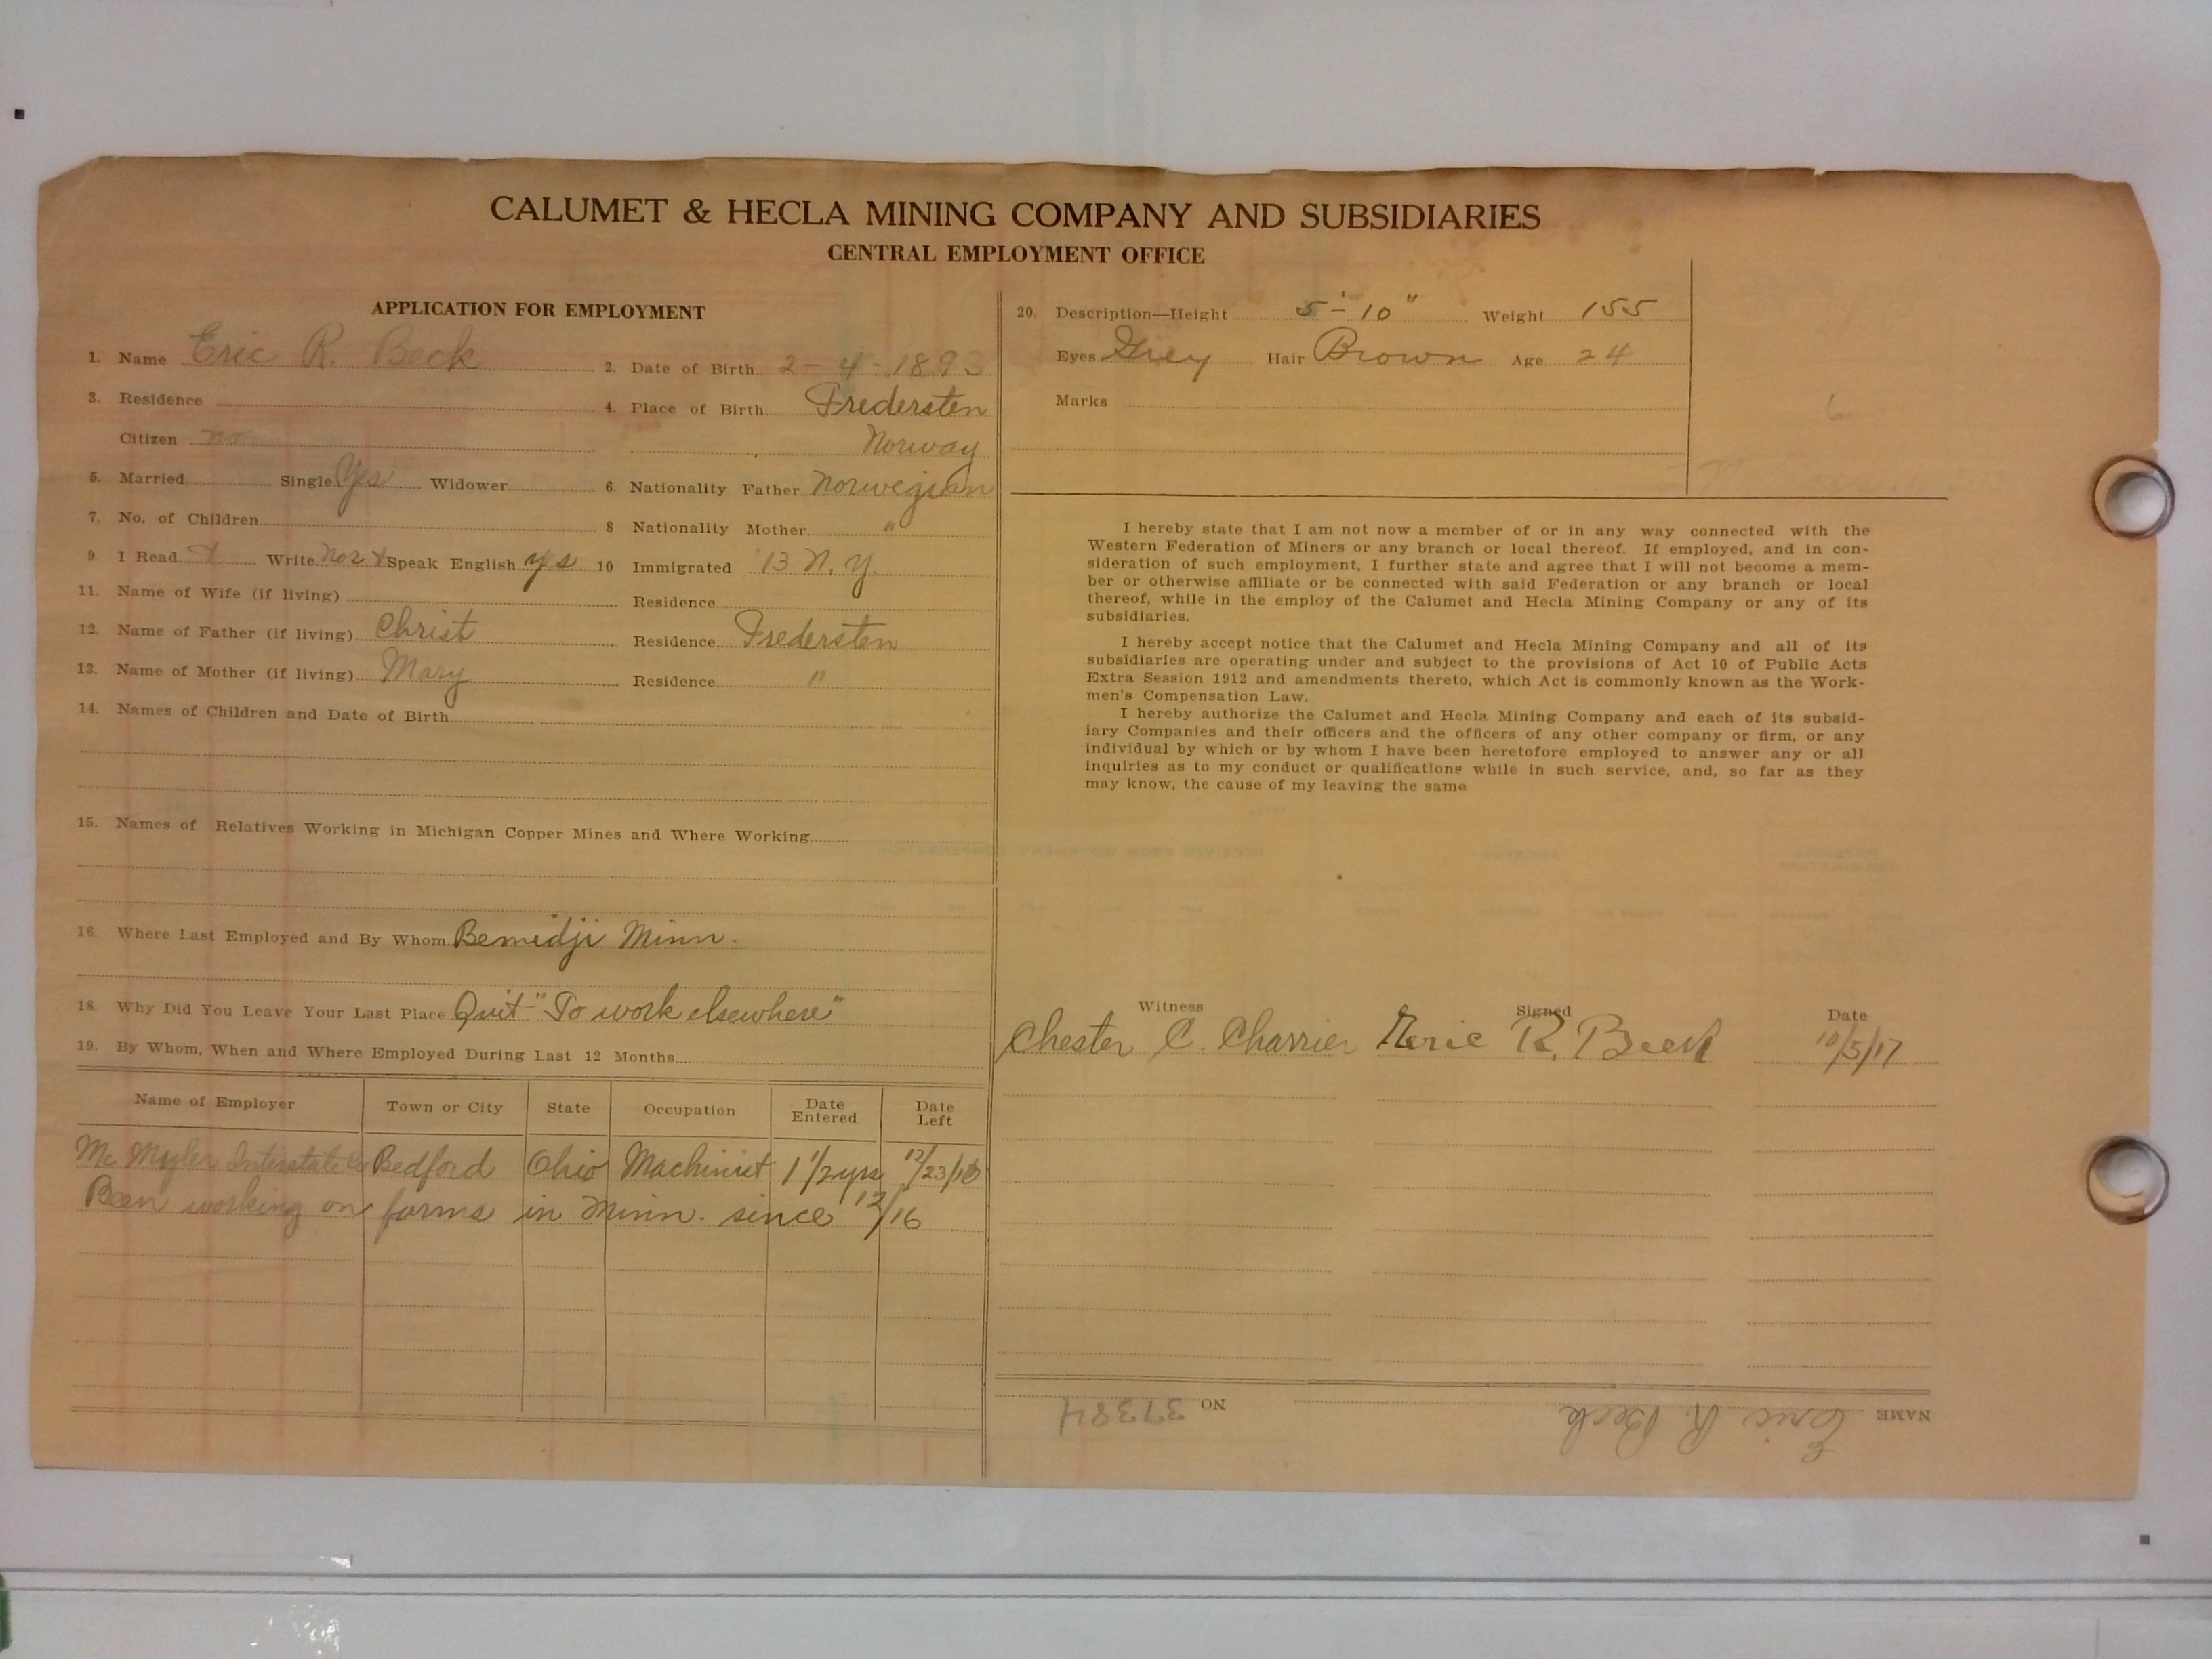 CALUMET & HECLA MINING COMPANY AND SUBSIDIARIES
CENTRAL EMPLOYMENT OFFICE
APPLICATION FOR EMPLOYMENT
1. Name Eric R. Beck 2. Date of Birth 2-4-1893
3. Residence 4. Place of Birth Fredersten
Citizen no Norway
5. Married Single Yes Widower 6. Nationality Father Norwegian
7. No. of Children 8 Nationality Mother "
9 I Read Write Nor Speak English yes 10 Immigrated '13 N.Y.
11. Name of Wife (if living) Residence
12. Name of Father (if living) Christ Residence Fredersten
13. Name of Mother (if living) Mary Residence "
14. Names of Children and Date of Birth
15. Names of Relatives Working in Michigan Copper Mines and Where Working
16. Where Last Employed and By Whom Bemidji Minn.
18. Why Did You Leave Your Last Place Quit "To work elsewhere"
19. By Whom, When and Where Employed During Last 12 Months
Name of Employer Town or City State Occupation Date Entered Date Left
Mc Myler Interstate Co Bedford Ohio Machinist 1 1/2 yrs 12/23/16
Been working on farms in Minn. since 12/16
20. Description—Height 5'-10" Weight 155
Eyes Grey Hair Brown Age 24
Marks
I hereby state that I am not now a member of or in any way connected with the
Western Federation of Miners or any branch or local thereof. If employed, and in con-
sideration of such employment, I further state and agree that I will not become a mem-
ber or otherwise affiliate or be connected with said Federation or any branch or local
thereof, while in the employ of the Calumet and Hecla Mining Company or any of its
subsidiaries.
I hereby accept notice that the Calumet and Hecla Mining Company and all of its
subsidiaries are operating under and subject to the provisions of Act 10 of Public Acts
Extra Session 1912 and amendments thereto, which Act is commonly known as the Work-
men's Compensation Law.
I hereby authorize the Calumet and Hecla Mining Company and each of its subsid-
iary Companies and their officers and the officers of any other company or firm, or any
individual by which or by whom I have been heretofore employed to answer any or all
inquiries as to my conduct or qualifications while in such service, and, so far as they
may know, the cause of my leaving the same
Witness Signed Date
Chester C. Charrier Eric R. Beck 10/5/17
NAME Eric R. Beck NO 37384